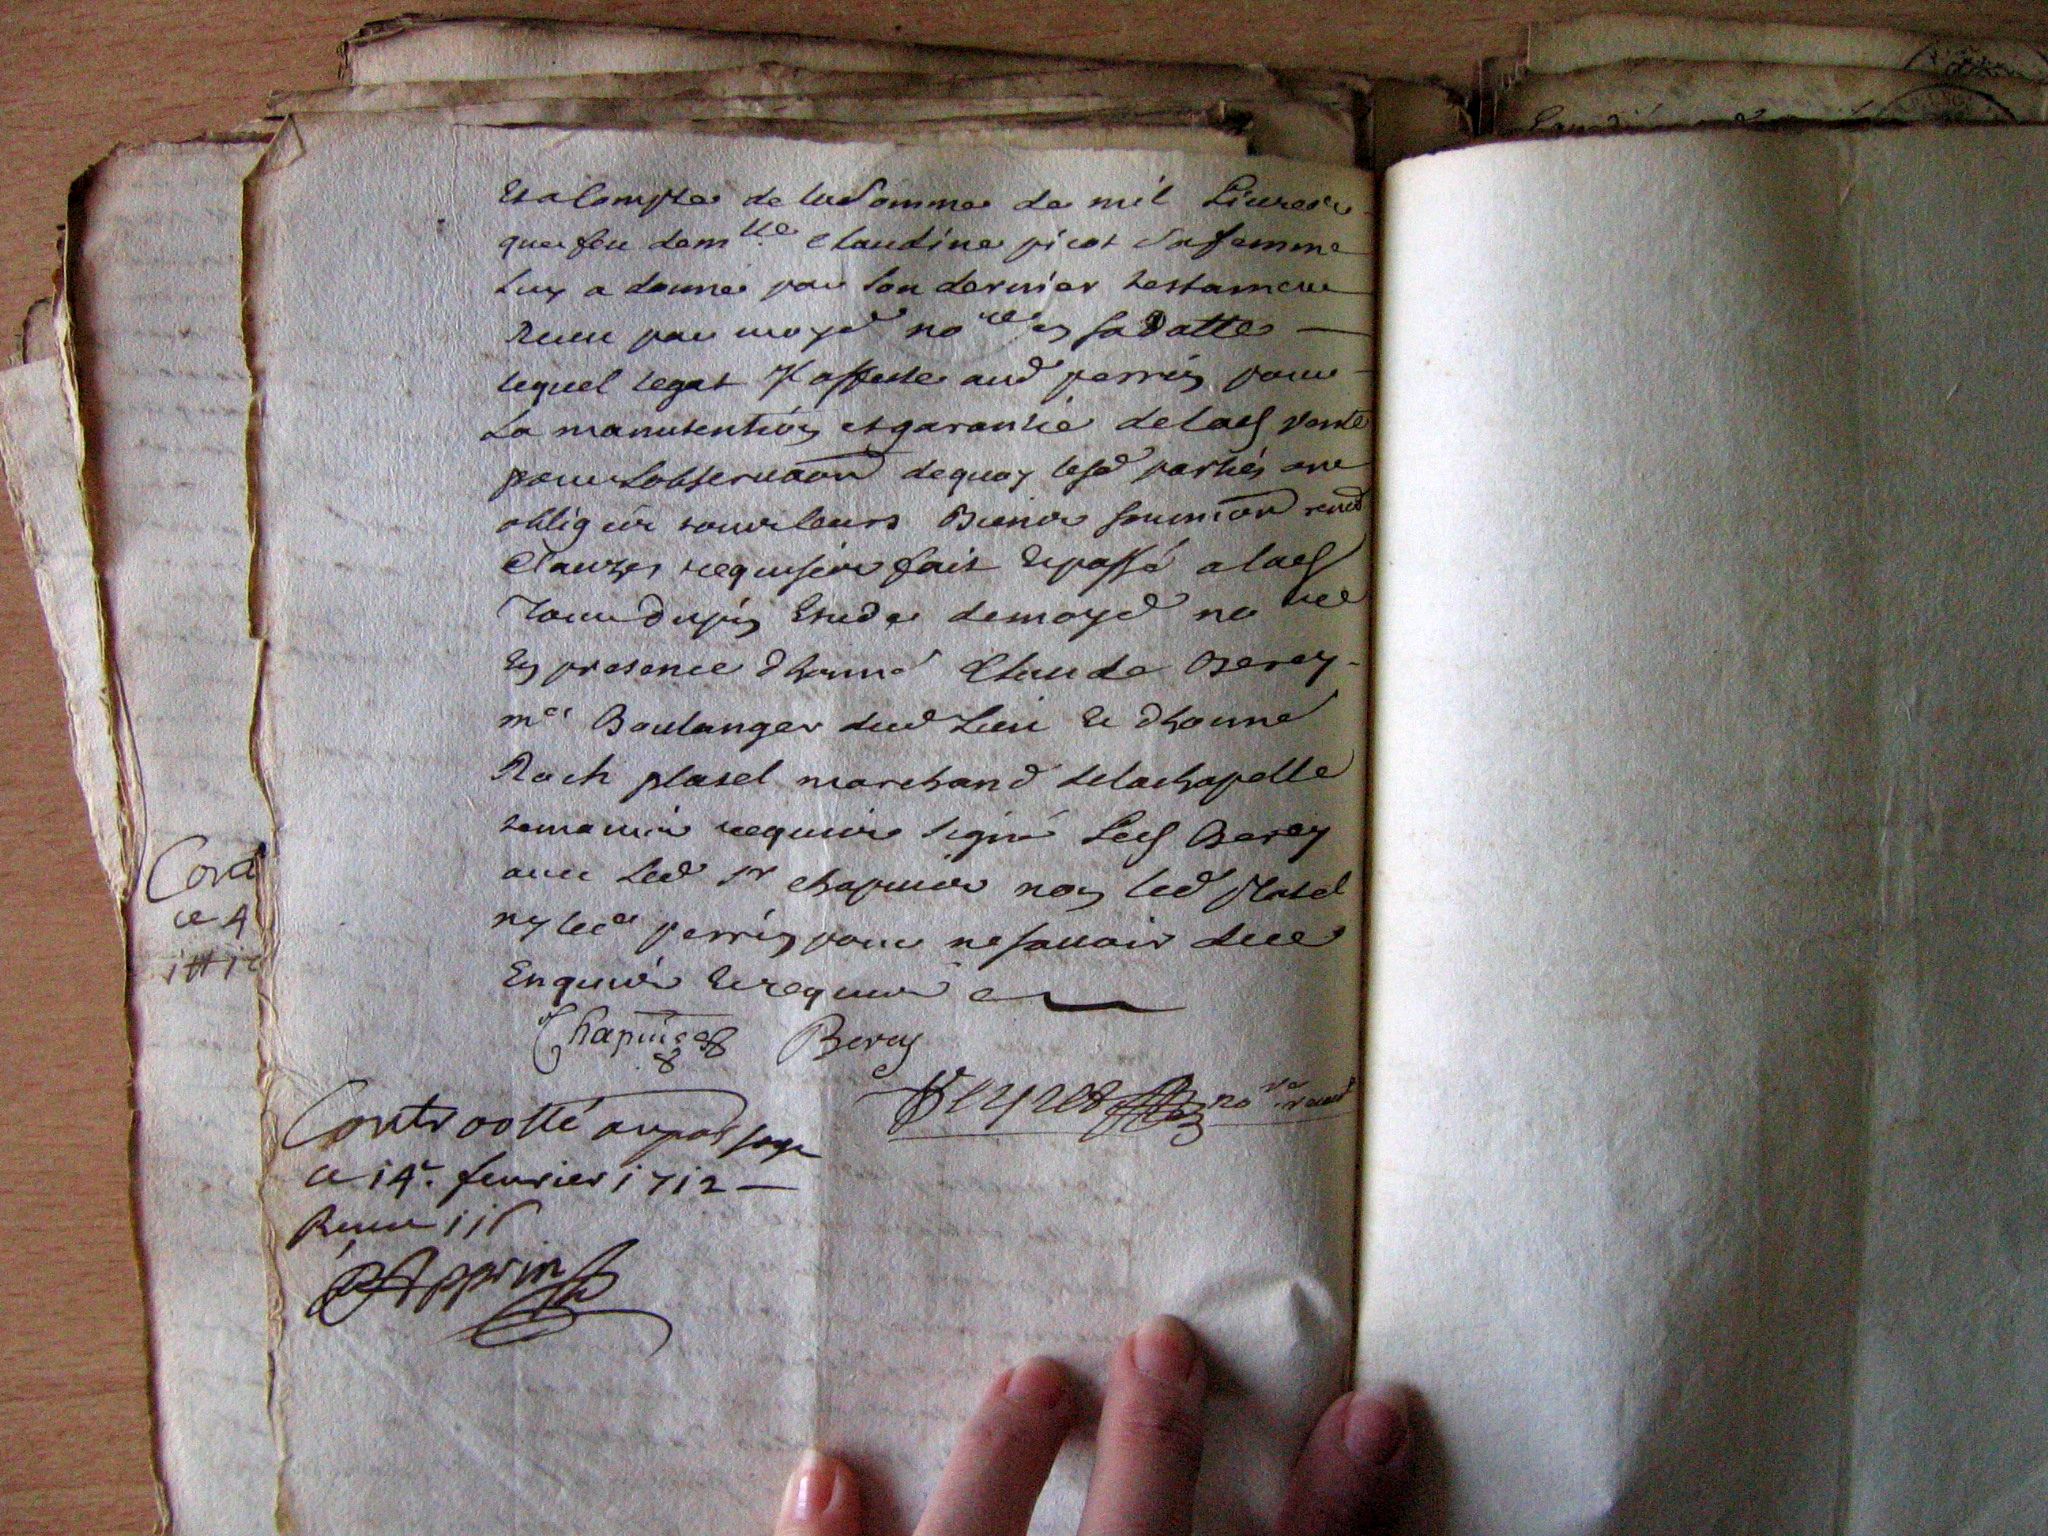 Et a Compte de la Somme de mil Livres
que feu dem.lle Claudine picot Sa femme
Luy a donné par Son dernier testament
Receu par moyd no.re en Sa Datte
lequel legat Il affecte aud perrin pour
La manutention et garantie de lad vente
pour Lobservaon de quoy lesd parties ont
obligéz tous leurs Biens soumion renon
Clauzes requises fait et passé a lad
Tour Dupin Etude de moyd no.re
En presence dhonne Claude Berey
me Boulanger dud Lieu et dhonne
Roch plasel marchand de la chapelle
temoins requis signé Led Berey
avec Led Sr chapuis non led Plasel
ny led perrin pour ne savoir deue
Enquis et requis
Chapuis Berey
no.re
Controollé au passage
ce 14. fevrier 1712
Receu
Apprin
Cont
ce 4